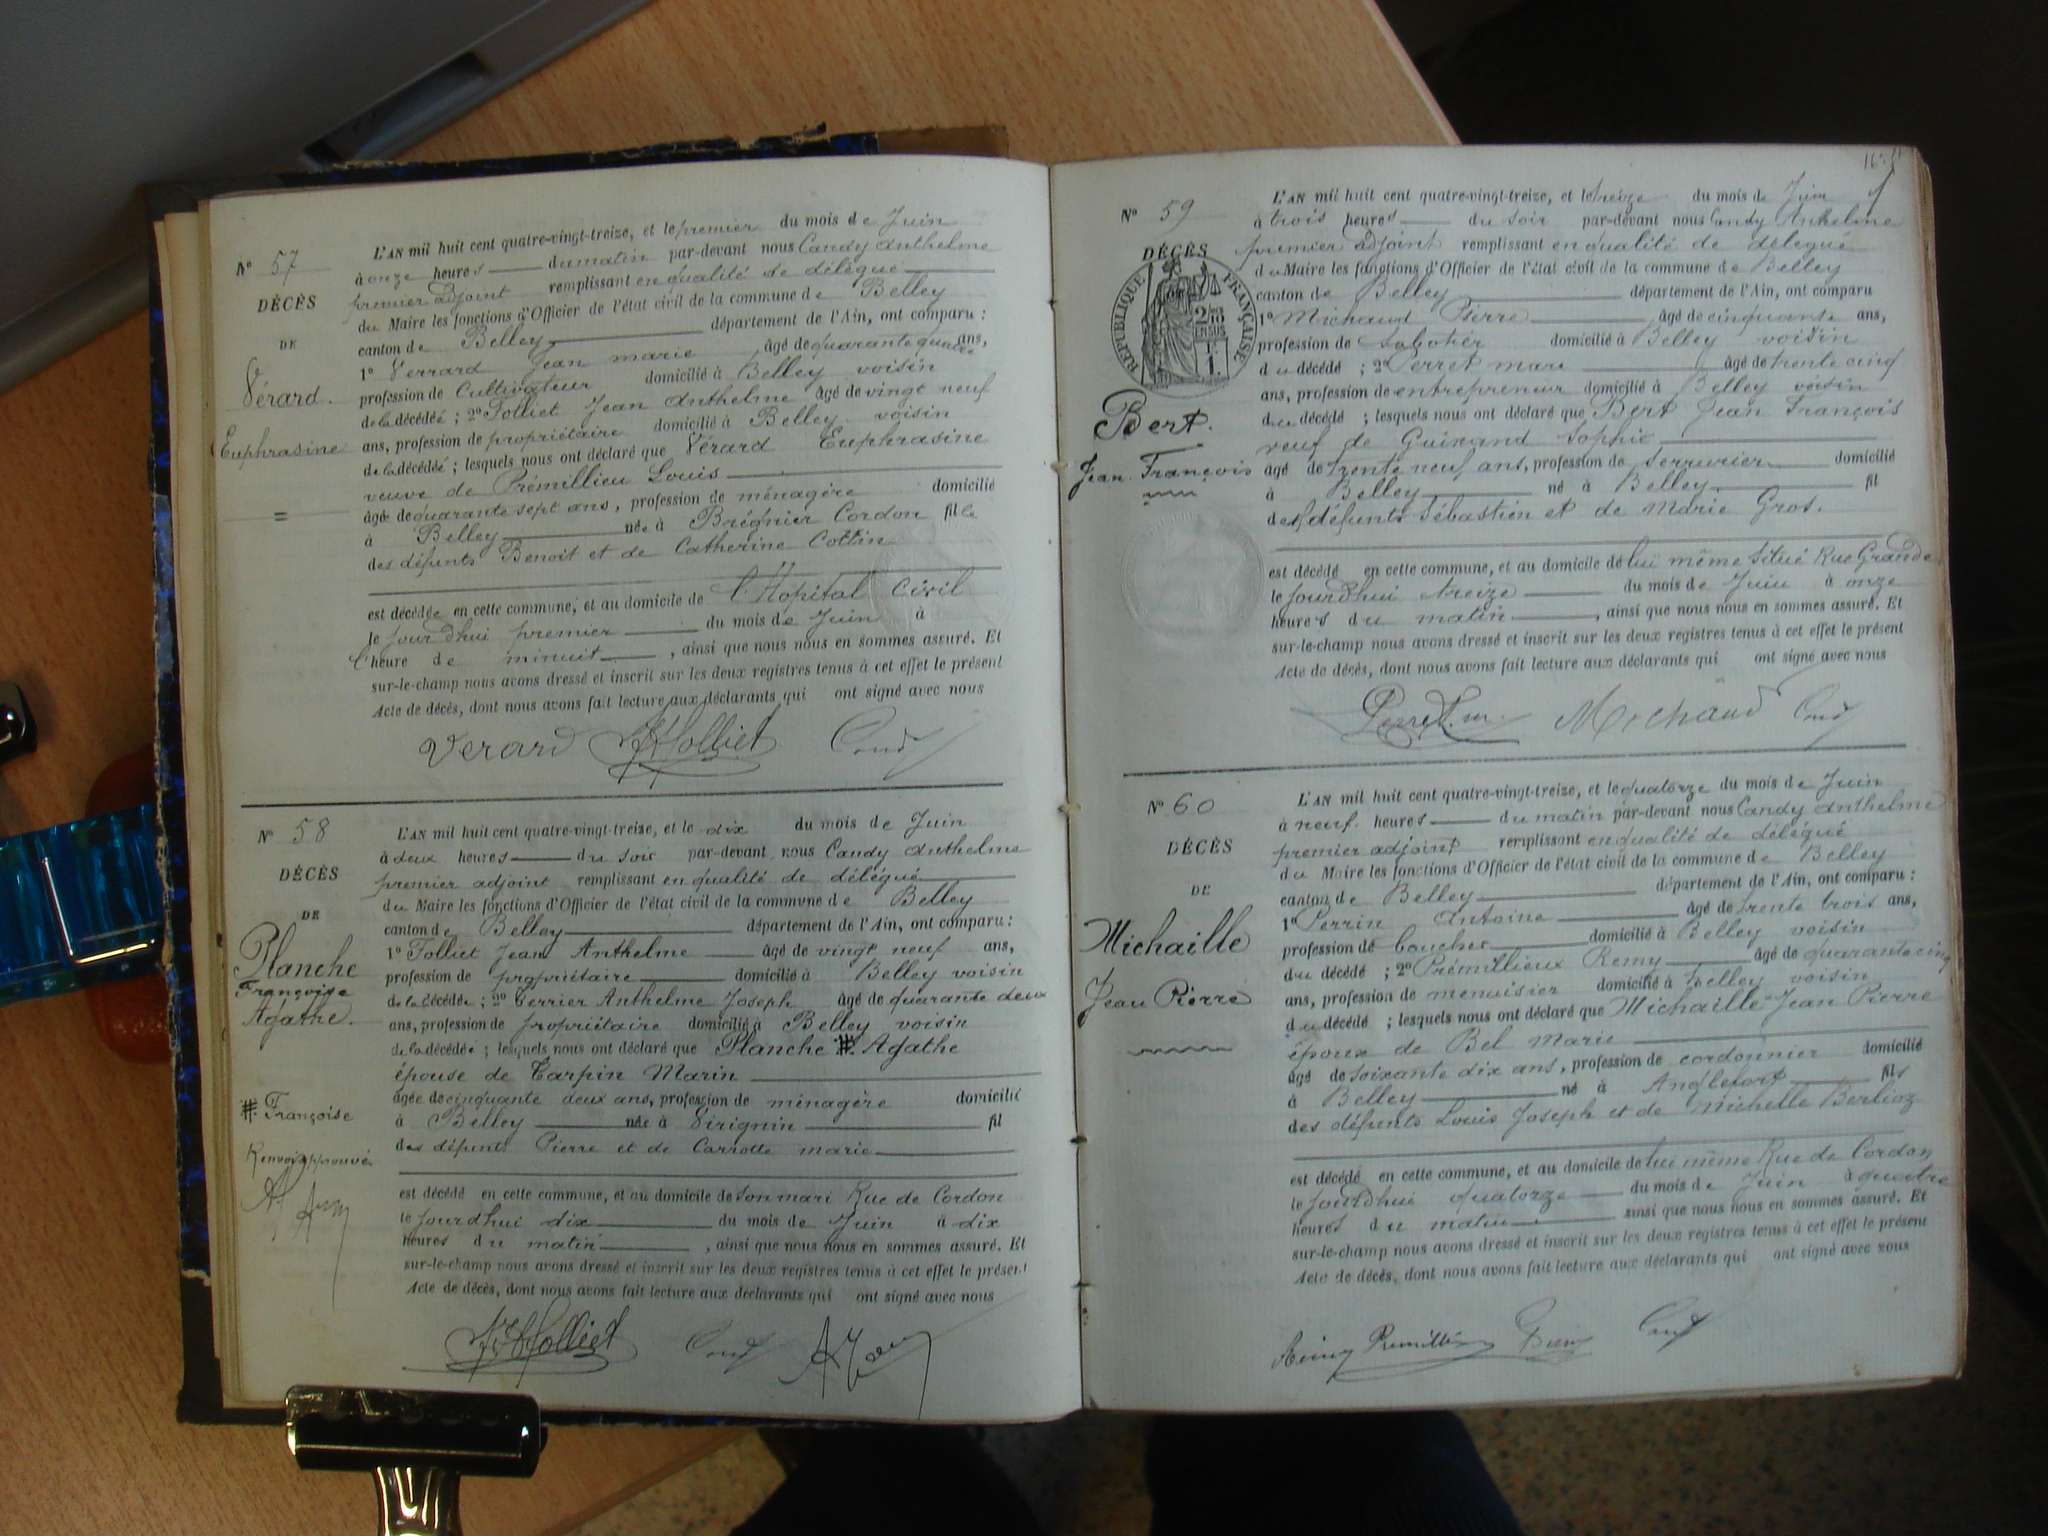 N° 57
DÉCÈS
DE
Vérard.
Euphrasine
L'AN mil huit cent quatre-vingt-treize, et le premier du mois de Juin
à onze heures du matin par-devant nous Candy Anthelme
premier adjoint remplissant en qualité de délégué
du Maire les fonctions d'Officier de l'état civil de la commune de Belley
canton de Belley département de l'Ain, ont comparu :
1° Verrard Jean marie âgé de quarante quatre ans,
profession de Cultivateur domicilié à Belley voisin
de la décédée ; 2° Folliet Jean Anthelme âgé de vingt neuf
ans, profession de propriétaire domicilié à Belley voisin
de la décédée ; lesquels nous ont déclaré que Vérard Euphrasine
veuve de Prémillieu Louis
âgée de quarante sept ans, profession de ménagère domicilié
à Belley née à Brégnier Cordon fille
des défunts Benoit et de Catherine Cottin
est décédée en cette commune, et au domicile de l'Hopital Civil
le jourd'hui premier du mois de Juin à
l'heure de minuit, ainsi que nous nous en sommes assuré. Et
sur-le-champ nous avons dressé et inscrit sur les deux registres tenus à cet effet le présent
Acte de décès, dont nous avons fait lecture aux déclarants qui ont signé avec nous
Verard Folliet
N° 58
DÉCÈS
DE
Planche
Françoise
Agathe.
#. Françoise
Renvoi approuvé
L'AN mil huit cent quatre-vingt-treize, et le dix du mois de Juin
à deux heures du soir par-devant nous Candy Anthelme
premier adjoint remplissant en qualité de délégué
du Maire les fonctions d'Officier de l'état civil de la commune de Belley
canton de Belley département de l'Ain, ont comparu :
1° Folliet Jean Anthelme âgé de vingt neuf ans,
profession de propriétaire domicilié à Belley voisin
de la décédée ; 2° Terrier Anthelme Joseph âgé de quarante deux
ans, profession de propriétaire domicilié à Belley voisin
de la décédée ; lesquels nous ont déclaré que Planche #. Agathe
épouse de Tarpin Marin
âgée de cinquante deux ans, profession de ménagère domicilié
à Belley née à Virignin fil
des défunts Pierre et de Carrotte marie
est décédé en cette commune, et au domicile de son mari Rue de Cordon
le jourdhui dix du mois de Juin à dix
heures du matin, ainsi que nous nous en sommes assuré. Et
sur-le-champ nous avons dressé et inscrit sur les deux registres tenus à cet effet le présent
Acte de décès, dont nous avons fait lecture aux déclarants qui ont signé avec nous
Folliet
N° 59
DÉCÈS
RÉPUBLIQUE FRANÇAISE
Bert.
Jean François
L'AN mil huit cent quatre-vingt-treize, et le treize du mois de Juin
à trois heures du soir par-devant nous Candy Anthelme
premier adjoint remplissant en qualité de délégué
du Maire les fonctions d'Officier de l'état civil de la commune de Belley
canton de Belley département de l'Ain, ont comparu
1° Michaud Pierre âgé de cinquante ans,
profession de Sabotier domicilié à Belley voisin
du décédé ; 2° Perret marc âgé de trente cinq
ans, profession de entrepreneur domicilié à Belley voisin
du décédé ; lesquels nous ont déclaré que Bert Jean François
veuf de Guinand Sophie
âgé de trente neuf ans, profession de serrurier domicilié
à Belley né à Belley fil
des défunts Sébastien et de Marie Gros.
est décédé en cette commune, et au domicile de lui même situé Rue Grande
le jourdhui treize du mois de Juin à onze
heures du matin, ainsi que nous nous en sommes assuré. Et
sur-le-champ nous avons dressé et inscrit sur les deux registres tenus à cet effet le présent
Acte de décès, dont nous avons fait lecture aux déclarants qui ont signé avec nous
Perret m. Michaud
N° 60
DÉCÈS
DE
Michaille
Jean Pierre
L'AN mil huit cent quatre-vingt-treize, et le quatorze du mois de Juin
à neuf heures du matin par-devant nous Candy Anthelme
premier adjoint remplissant en qualité de délégué
du Maire les fonctions d'Officier de l'état civil de la commune de Belley
canton de Belley département de l'Ain, ont comparu :
1° Perrin Antoine âgé de trente trois ans,
profession de boucher domicilié à Belley voisin
du décédé ; 2° Prémillieux Remy âgé de quarante cinq
ans, profession de menuisier domicilié à Belley voisin
du décédé ; lesquels nous ont déclaré que Michaille Jean Pierre
époux de Bel Marie
âgé de soixante dix ans, profession de cordonnier domicilié
à Belley né à Anglefort fils
des défunts Louis Joseph et de Michelle Berlioz
est décédé en cette commune, et au domicile de lui même Rue de Cordon
le jourdhui quatorze du mois de Juin à quatre
heures du matin ainsi que nous nous en sommes assuré. Et
sur-le-champ nous avons dressé et inscrit sur les deux registres tenus à cet effet le présent
Acte de décès, dont nous avons fait lecture aux déclarants qui ont signé avec nous